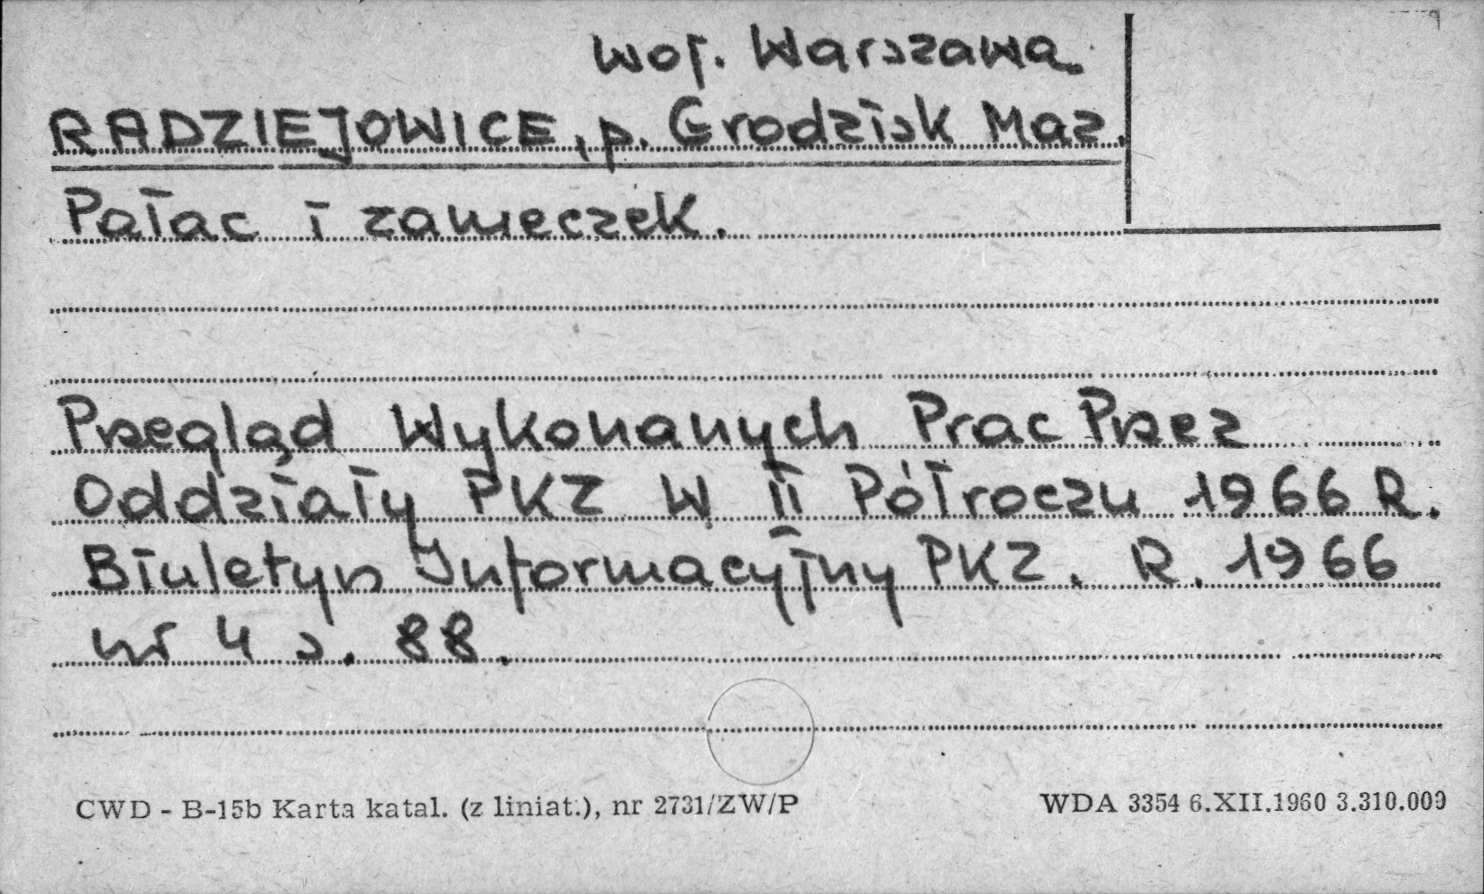 woj. Warszawa
RADZIEJOWICE, p. Grodzisk Maz.
Pałac i zameczek.
Przegląd Wykonanych Prac Przez
Oddziały PKZ W II Półroczu 1966 R.
Biuletyn Informacyjny PKZ. R. 1966
nr 4 s. 88.
CWD - B-15b Karta katal. (z liniat.), nr 2731/ZW/P WDA 3354 6.XII.1960 3.310.000